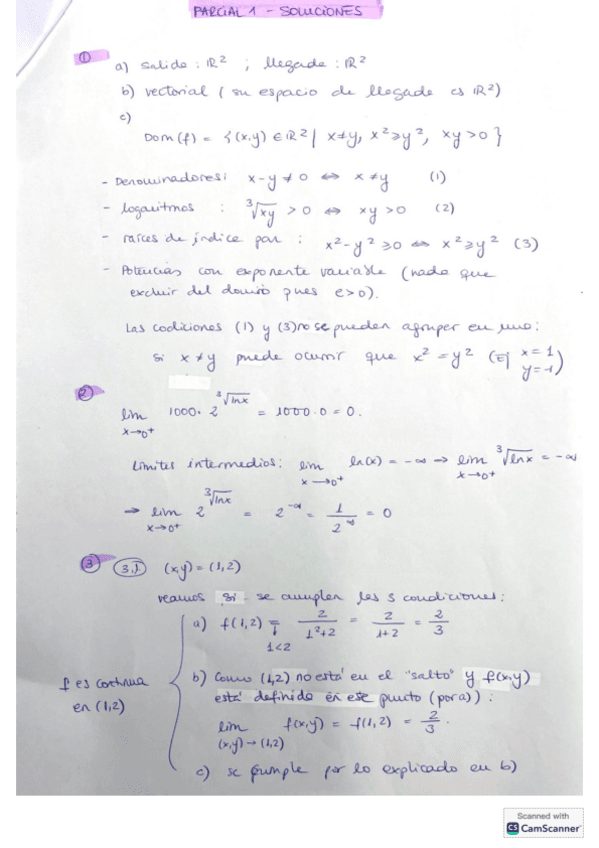 PARCIAL 1 - SOLUCIONES
①
a) Salida : ℝ² ; llegada : ℝ²
b) vectorial ( su espacio de llegada es ℝ²)
c)
Dom(f) = {(x,y) ∈ ℝ² | x≠y, x²≥y², xy>0 }
- Denominadores: x-y ≠ 0 ⇔ x≠y (1)
- logaritmos : ∛xy > 0 ⇔ xy>0 (2)
- raíces de índice par : x²-y²≥0 ⇔ x²≥y² (3)
- Potencias con exponente variable (nada que
excluir del dominio pues e>0).
Las codiciones (1) y (3) no se pueden agrupar en una:
si x≠y puede ocurrir que x²=y² (Ej x=1 y=-1)
②
lim x→0⁺ 1000·2^∛lnx = 1000·0 = 0.
Límites intermedios: lim x→0⁺ ln(x) = -∞ → lim x→0⁺ ∛lnx = -∞
→ lim x→0⁺ 2^∛lnx = 2^-∞ = 1/2^∞ = 0
③ 3.1. (x,y) = (1,2)
veamos si se cumplen las 3 condiciones:
a) f(1,2) = 2/1²+2 = 2/1+2 = 2/3
↑
1<2
f es continua
en (1,2)
b) Como (1,2) no está en el "salto" y f(x,y)
está definida en este punto (por a)) :
lim (x,y)→(1,2) f(x,y) = f(1,2) = 2/3.
c) se cumple por lo explicado en b)
Scanned with
CS CamScanner